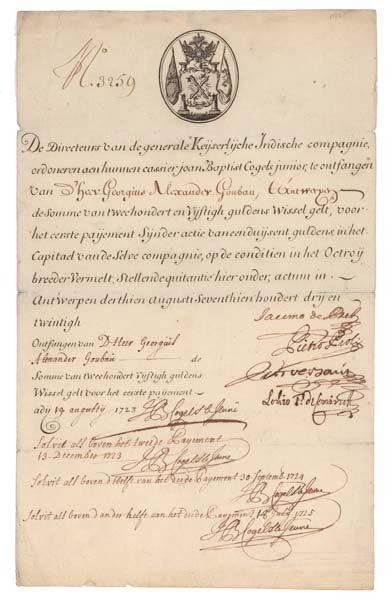 No. 3259
De Directeurs van de generale Keijserlijche Indische compagnie,
ordoneren aen hunnen cassier joan Baptist Cogels junior, te ontfangen
van D'heer Georgius Alexander Goubau, t'Antwerpen
de Somme van tweehondert en Vijftigh guldens Wissel gelt, voor
het eerste paijement Sijnder actie van eenduijsent guldens in het
Capitael van de Selve compagnie, op de conditien in het Octroij
breeder Vermelt, Stellende quitantie hier onder, actum in
Antwerpen derthien Augusti Seventhien hondert drij en
twintigh
Jacimo de
Pietro Proli
Ontfangen van D'Heer Georguis
Alexander Goubau de
Somme van tweehondert Vijftigh guldens
Wissel gelt voor het eerste paijement
adij 19 augusty 1723 JB Cogels le Jeune
Solvit als boven het tweede Payement
13. December 1723 JB Cogels le Jeune
Solvit als boven d'helft van het derde Payement 30 Septemb. 1724
JB Cogels le Jeune
Solvit als boven d'ander helft van het derde Payement 1725
JB Cogels le Jeune